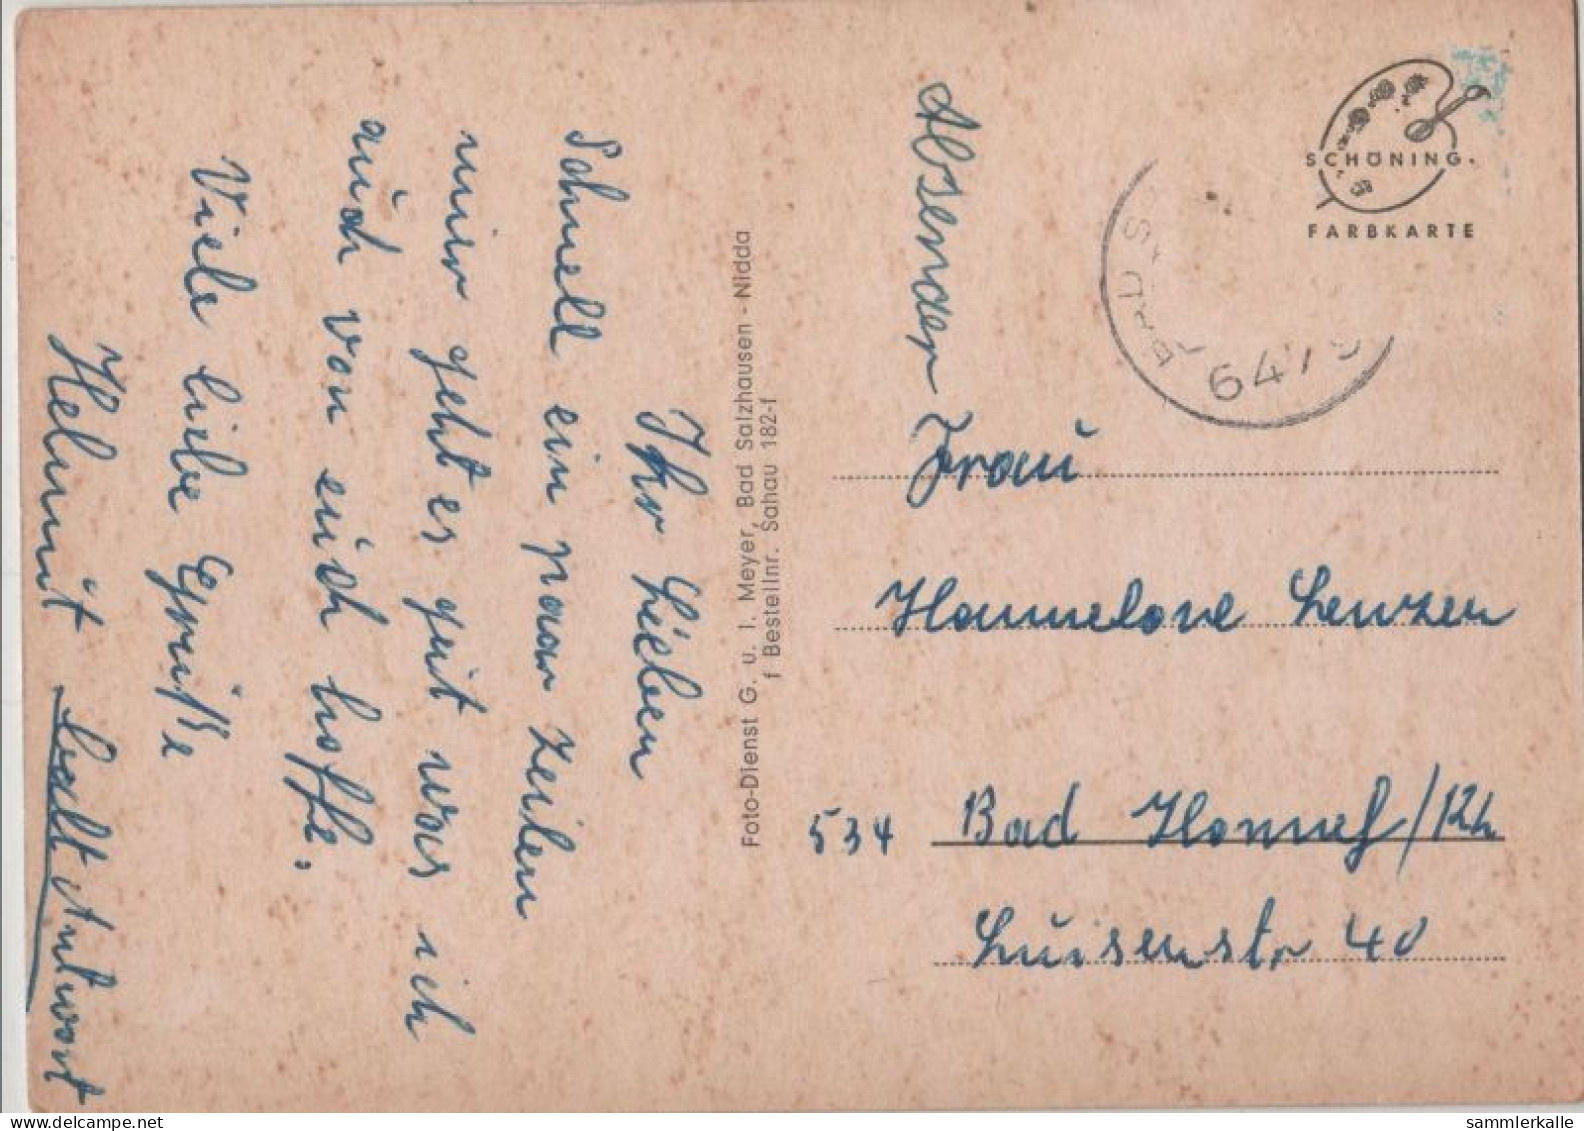 Ihr Lieben
Schnell ein paar Zeilen
mir geht es gut was ich
auch von euch hoffe.
Viele liebe Grüße
Helmut bald Antwort
Foto-Dienst G. u. I. Meyer, Bad Salzhausen - Nidda
f Bestellnr. Sahau 182-f
SCHÖNING.
FARBKARTE
BAD S
6479
Absender
Frau
Hannelore Lenzen
534 Bad Honnef/Rh
Luisenstr 40
sammlerkalle